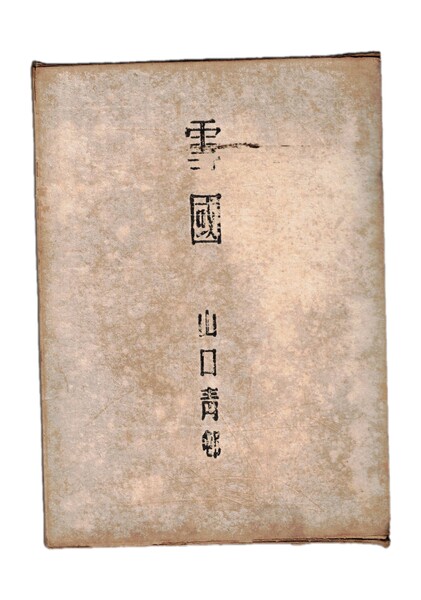 雪國
山口青邨